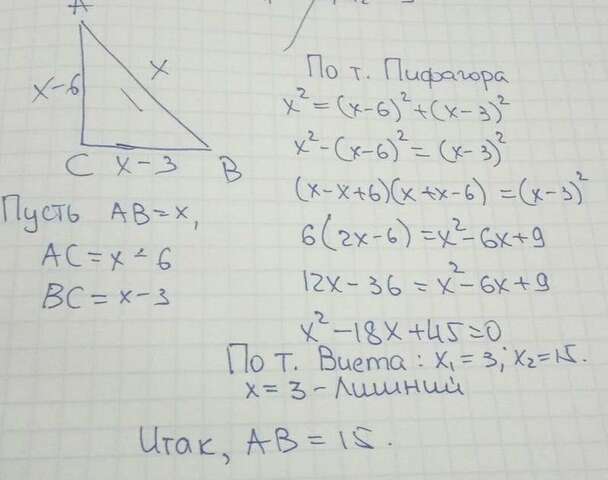 A
x-6
x
C x-3 B
Пусть AB=x,
AC=x-6
BC=x-3
По т. Пифагора
x²=(x-6)²+(x-3)²
x²-(x-6)²=(x-3)²
(x-x+6)(x+x-6)=(x-3)²
6(2x-6)=x²-6x+9
12x-36=x²-6x+9
x²-18x+45=0
По т. Виета: x₁=3; x₂=15.
x=3-Лишний
Итак, AB=15.